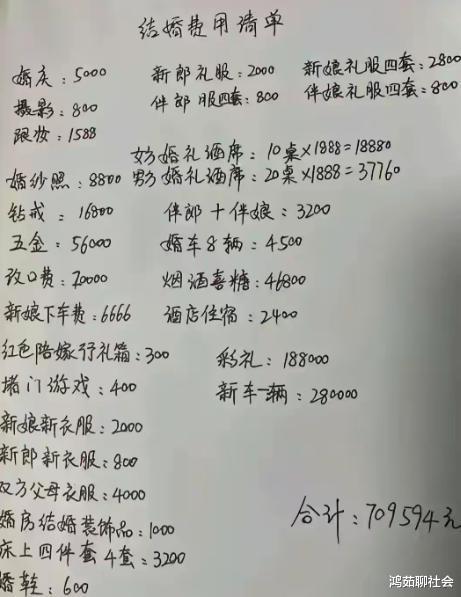 结婚费用清单
婚庆：5000 新郎礼服：2000 新娘礼服四套：2800
摄影：800 伴郎服四套：800 伴娘礼服四套：800
跟妆：1588
女方婚礼酒席：10桌×1888=18880
婚纱照：8800 男方婚礼酒席：20桌×1888=37760
钻戒：16800 伴郎+伴娘：3200
五金：56000 婚车8辆：4500
改口费：20000 烟酒喜糖：46800
新娘下车费：6666 酒店住宿：2400
红色陪嫁行礼箱：300 彩礼：188000
堵门游戏：400 新车一辆：280000
新娘新衣服：2000
新郎新衣服：800
双方父母衣服：4000
婚房结婚装饰品：1000
合计：709594元
床上四件套4套：3200
婚鞋：600
鸿茹聊社会